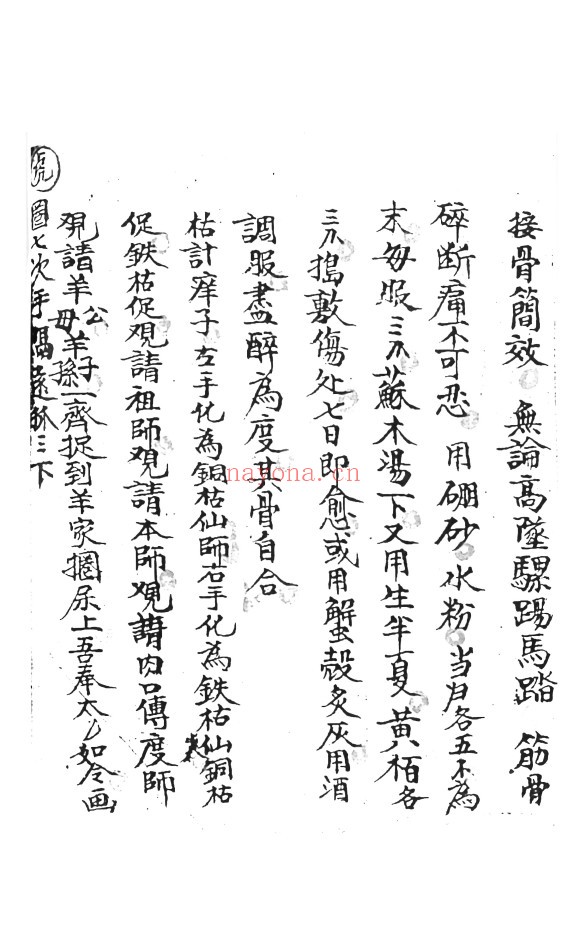 接骨簡效　無論高墜騾踢馬踏　筋骨
碎断痛不可忍　用硼砂水粉　当归各五不為
末每服三爪蘇木湯下又用生半夏黄栢各
三爪搗敷傷处七日即愈或用蟹殼炙灰用酒
調服盡醉為度其骨自合
枯計痒子左手化為銅枯仙師右手化為鉄枯仙銅枯
促鉄枯促观請祖師观請本師观請肉口傳度師
观請羊公羊母羊子羊孫一齊捉到羊家摑尿上吾奉太乙如令画
圈七次手
三下
nayona.cn